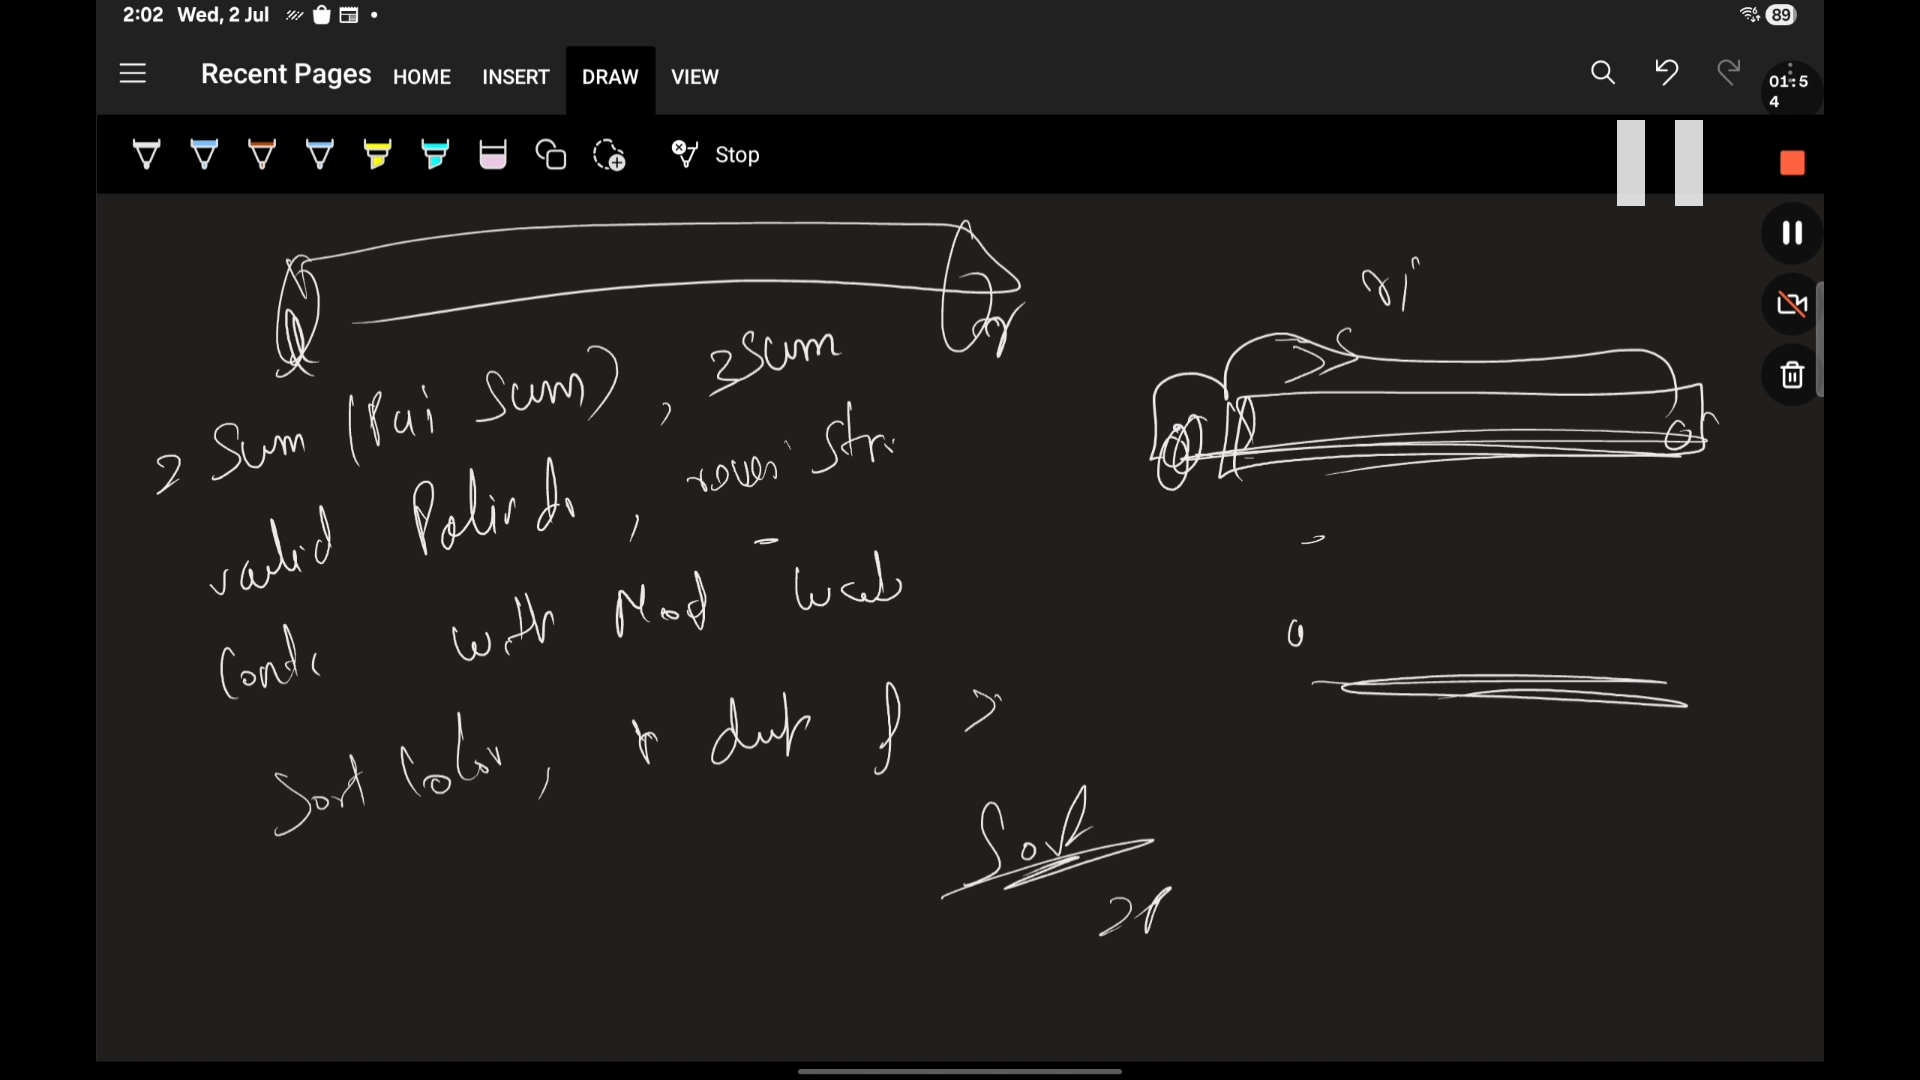 2:02 Wed, 2 Jul
89
Recent Pages HOME INSERT DRAW VIEW
01:5
4
Stop
l r
2 Sum (Pai Sum), 3Sum
valid Palind, revers Stri
Cont with Most Wat
Sort Color, r dup f
Sort